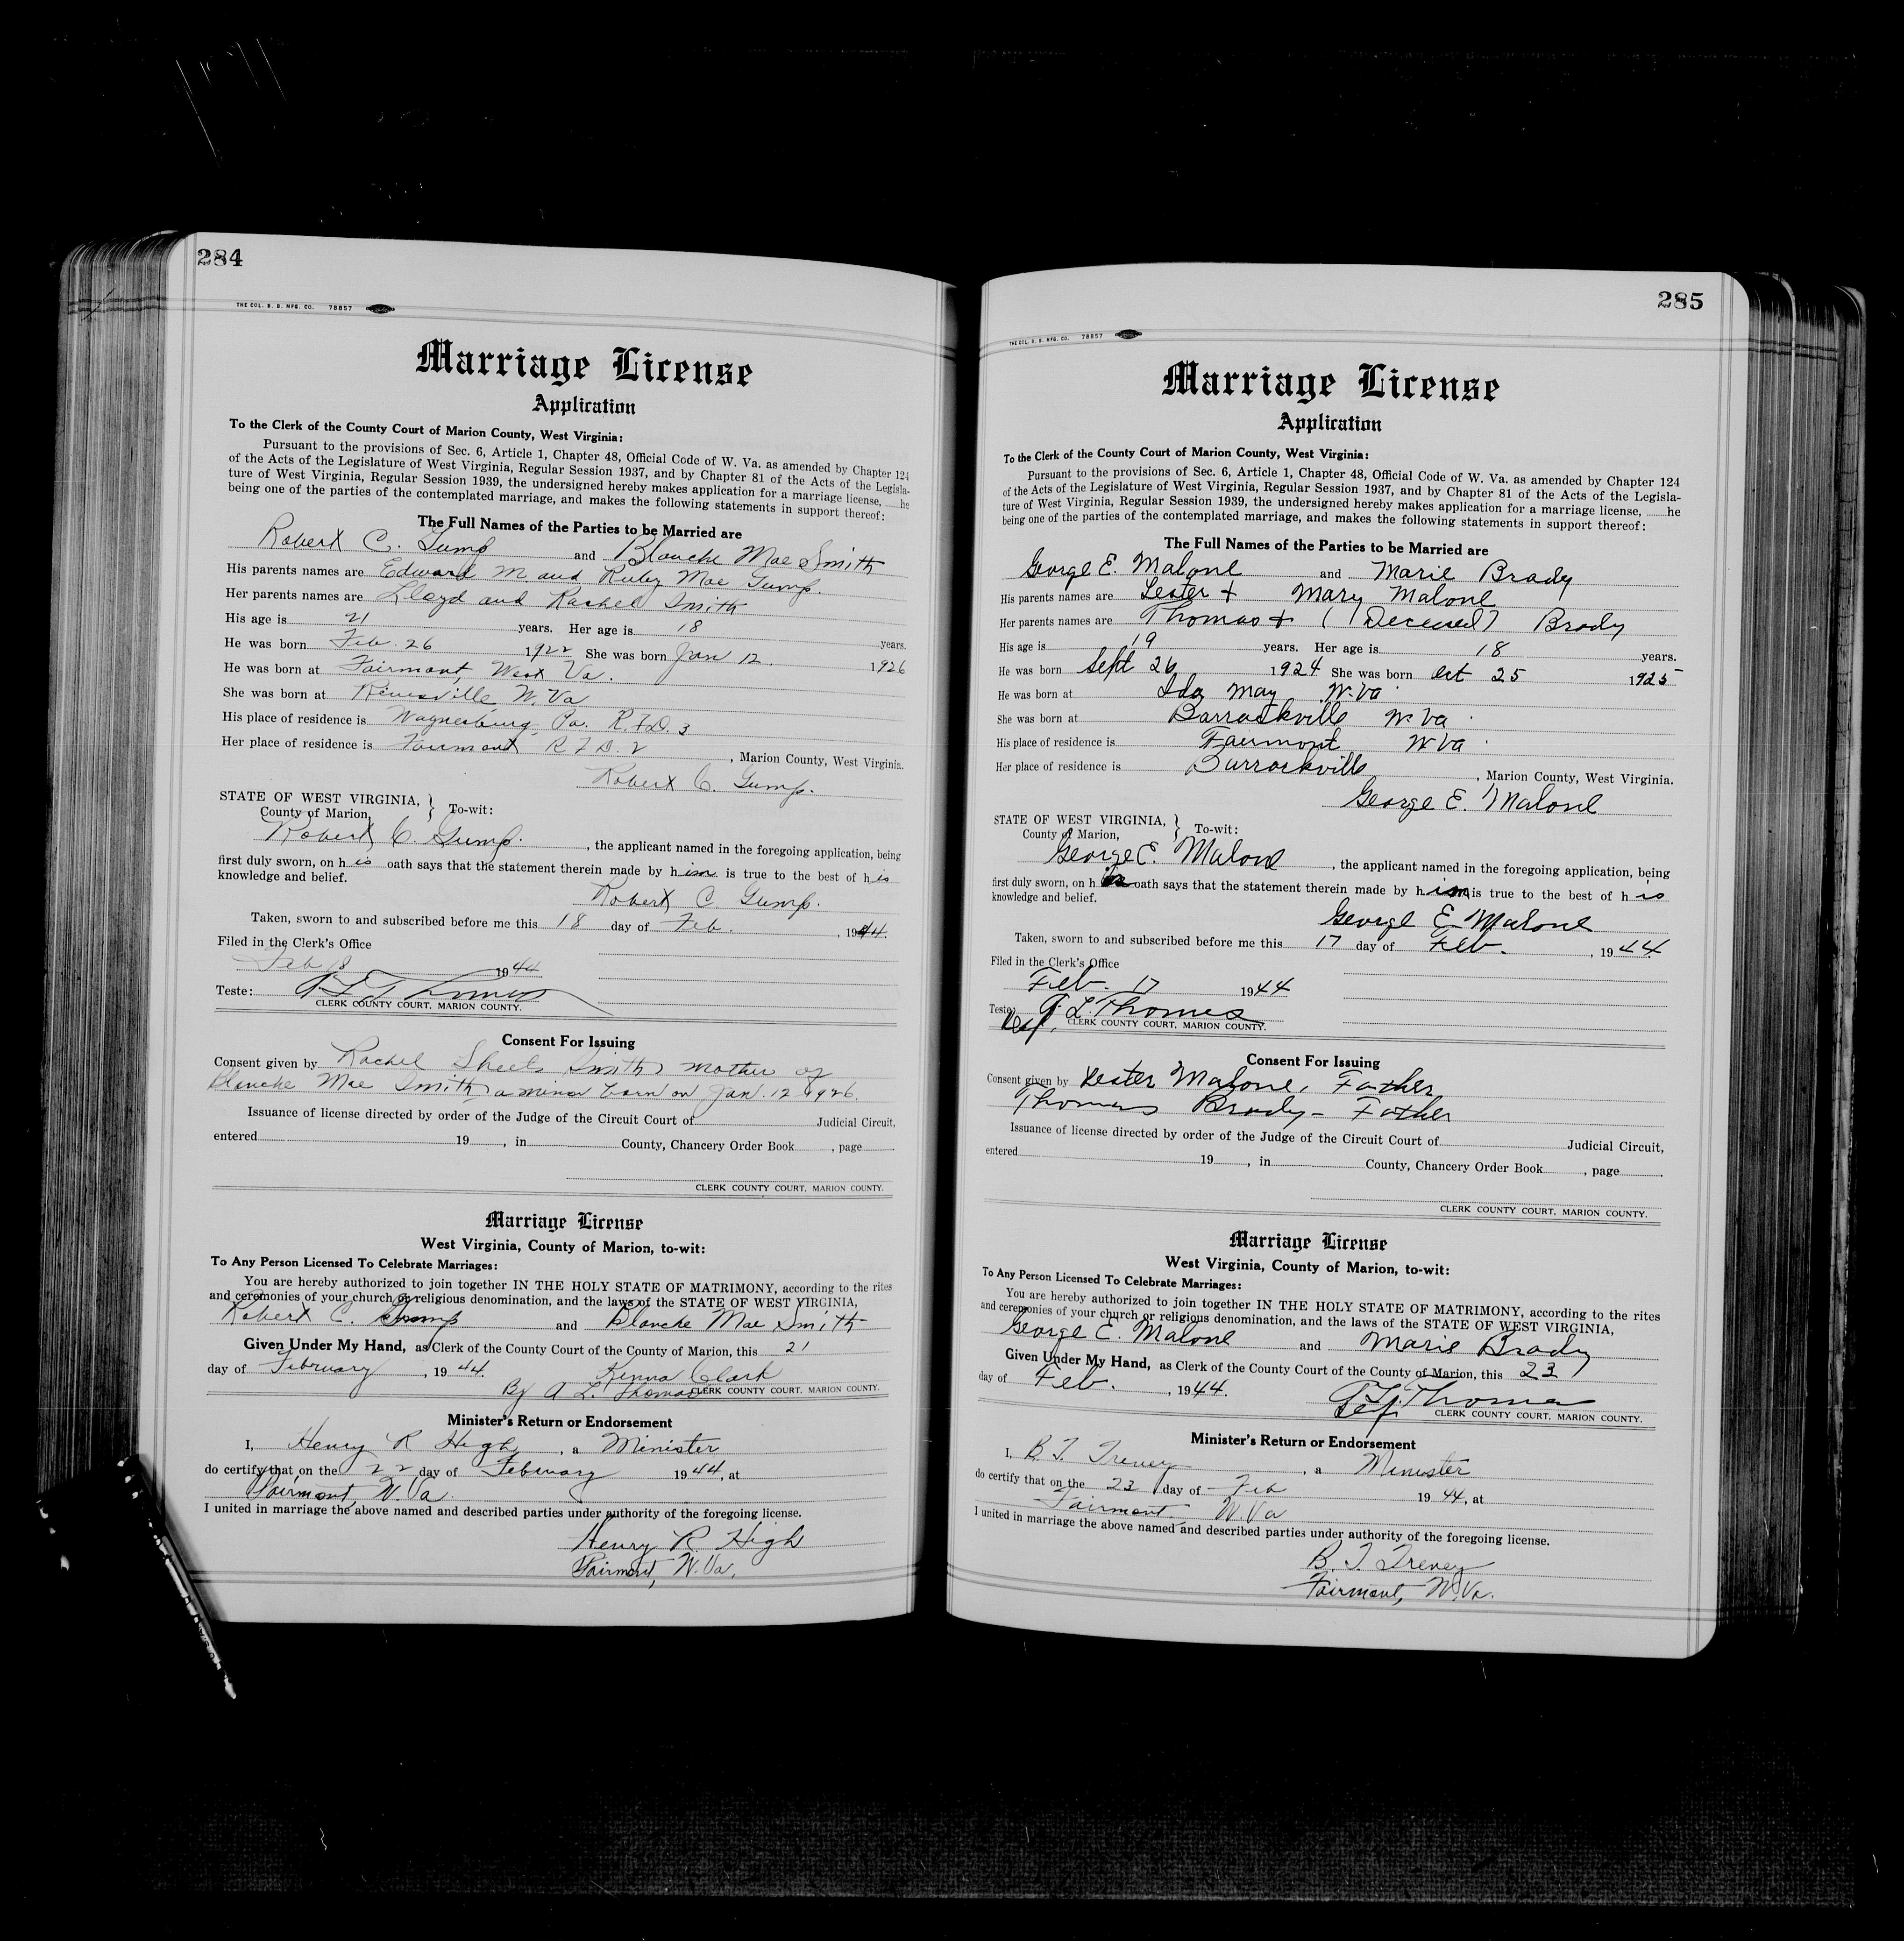 284
THE COL. B. B. MFG. CO. 78857
Marriage License
Application
To the Clerk of the County Court of Marion County, West Virginia:
Pursuant to the provisions of Sec. 6, Article 1, Chapter 48, Official Code of W. Va. as amended by Chapter 124
of the Acts of the Legislature of West Virginia, Regular Session 1937, and by Chapter 81 of the Acts of the Legisla-
ture of West Virginia, Regular Session 1939, the undersigned hereby makes application for a marriage license, ......he
being one of the parties of the contemplated marriage, and makes the following statements in support thereof:
The Full Names of the Parties to be Married are
Robert C. Gump and Blanche Mae Smith
His parents names are Edward M. and Ruby Mae Gump.
Her parents names are Lloyd and Rachel Smith
His age is 21 years. Her age is 18 years.
He was born Feb. 26 1922 She was born Jan 12. 1926
He was born at Fairmont, West Va.
She was born at Rivesville, W. Va
His place of residence is Waynesburg, Pa. R.F.D. 3
Her place of residence is Fairmont R F D. 2, Marion County, West Virginia.
Robert C. Gump.
STATE OF WEST VIRGINIA, } To-wit:
County of Marion,
Robert C. Gump., the applicant named in the foregoing application, being
first duly sworn, on his oath says that the statement therein made by him is true to the best of his
knowledge and belief.
Robert C. Gump.
Taken, sworn to and subscribed before me this 18 day of Feb., 1944.
Filed in the Clerk's Office
Feb 18 1944
Teste: A L Thomas
CLERK COUNTY COURT, MARION COUNTY.
Consent For Issuing
Consent given by Rachel Sheets Smith, mother of
Blanche Mae Smith, a minor born on Jan. 12 1926.
Issuance of license directed by order of the Judge of the Circuit Court of Judicial Circuit,
entered 19, in County, Chancery Order Book, page
CLERK COUNTY COURT, MARION COUNTY.
Marriage License
West Virginia, County of Marion, to-wit:
To Any Person Licensed To Celebrate Marriages:
You are hereby authorized to join together IN THE HOLY STATE OF MATRIMONY, according to the rites
and ceremonies of your church or religious denomination, and the laws of the STATE OF WEST VIRGINIA,
Robert C. Gump and Blanche Mae Smith
Given Under My Hand, as Clerk of the County Court of the County of Marion, this 21
day of February, 1944. Kenna Clark
By A L. Thomas CLERK COUNTY COURT, MARION COUNTY.
Minister's Return or Endorsement
I, Henry R High, a Minister
do certify that on the 22 day of February 1944, at
Fairmont, W. Va.
I united in marriage the above named and described parties under authority of the foregoing license.
Henry R. High
Fairmont, W. Va.
285
THE COL. B. B. MFG. CO. 78857
Marriage License
Application
To the Clerk of the County Court of Marion County, West Virginia:
Pursuant to the provisions of Sec. 6, Article 1, Chapter 48, Official Code of W. Va. as amended by Chapter 124
of the Acts of the Legislature of West Virginia, Regular Session 1937, and by Chapter 81 of the Acts of the Legisla-
ture of West Virginia, Regular Session 1939, the undersigned hereby makes application for a marriage license, ......he
being one of the parties of the contemplated marriage, and makes the following statements in support thereof:
The Full Names of the Parties to be Married are
George E. Malone and Marie Brady
His parents names are Lester + Mary Malone
Her parents names are Thomas + (Deceased) Brady
His age is 19 years. Her age is 18 years.
He was born Sept 26 1924 She was born Oct 25 1925
He was born at Ida May W. Va.
She was born at Barrackville W. Va.
His place of residence is Fairmont W Va.
Her place of residence is Barrackville, Marion County, West Virginia.
George E. Malone
STATE OF WEST VIRGINIA, } To-wit:
County of Marion,
George E. Malone, the applicant named in the foregoing application, being
first duly sworn, on his oath says that the statement therein made by him is true to the best of his
knowledge and belief.
George E. Malone
Taken, sworn to and subscribed before me this 17 day of Feb., 1944
Filed in the Clerk's Office
Feb. 17 1944
Teste: A. L. Thomas
Dep. CLERK COUNTY COURT, MARION COUNTY.
Consent For Issuing
Consent given by Lester Malone, Father
Thomas Brady - Father
Issuance of license directed by order of the Judge of the Circuit Court of Judicial Circuit,
entered 19, in County, Chancery Order Book, page
CLERK COUNTY COURT, MARION COUNTY.
Marriage License
West Virginia, County of Marion, to-wit:
To Any Person Licensed To Celebrate Marriages:
You are hereby authorized to join together IN THE HOLY STATE OF MATRIMONY, according to the rites
and ceremonies of your church or religious denomination, and the laws of the STATE OF WEST VIRGINIA,
George E. Malone and Marie Brady
Given Under My Hand, as Clerk of the County Court of the County of Marion, this 23
day of Feb., 1944. A. L. Thomas
Dep. CLERK COUNTY COURT, MARION COUNTY.
Minister's Return or Endorsement
I, B. T. Trevey, a Minister
do certify that on the 23 day of Feb 1944, at
Fairmont, W. Va
I united in marriage the above named and described parties under authority of the foregoing license.
B. T. Trevey
Fairmont, W. Va.